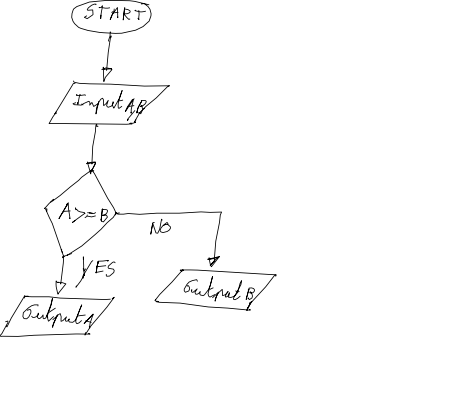 START
Input A,B
A>=B
NO
YES
Output A
Output B